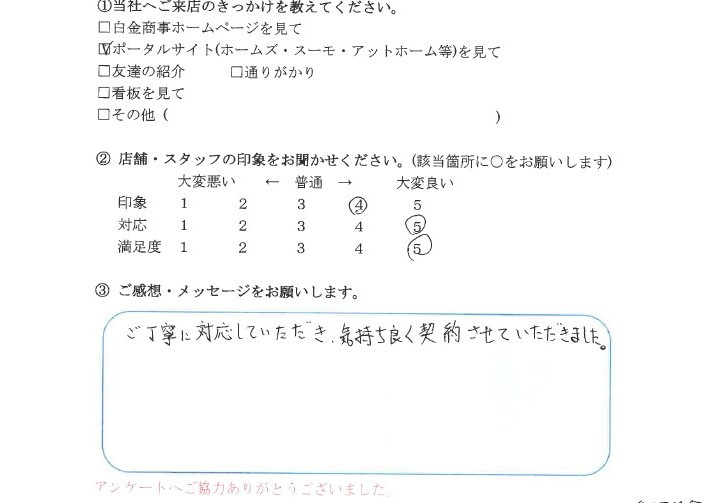 ①当社へご来店のきっかけを教えてください。
□白金商事ホームページを見て
☑ポータルサイト(ホームズ・スーモ・アットホーム等)を見て
□友達の紹介 □通りがかり
□看板を見て
□その他 ( )
② 店舗・スタッフの印象をお聞かせください。(該当箇所に○をお願いします)
大変悪い ← 普通 → 大変良い
印象 1 2 3 ④ 5
対応 1 2 3 4 ⑤
満足度 1 2 3 4 ⑤
③ ご感想・メッセージをお願いします。
ご丁寧に対応していただき、気持ち良く契約させていただきました。
アンケートへご協力ありがとうございました。